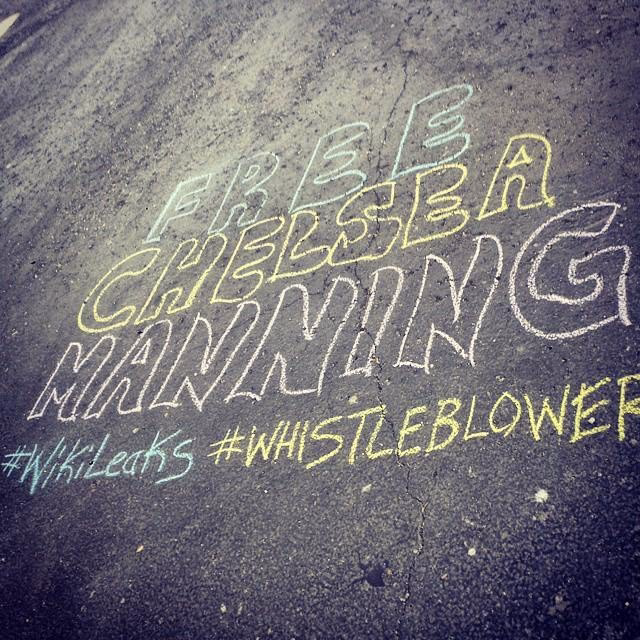 FREE
CHELSEA
MANNING
#WikiLeaks #WHISTLEBLOWER